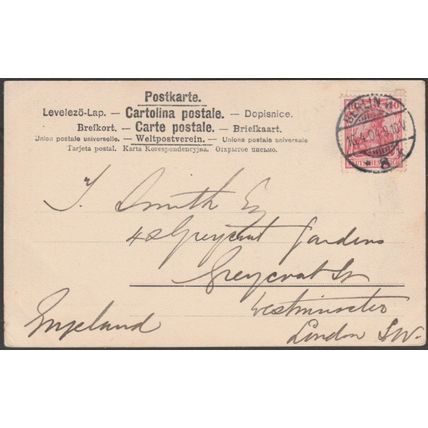 Postkarte.
Levelező-Lap. — Cartolina postale. — Dopisnice.
Brefkort. — Carte postale. — Briefkaart.
Union postale universelle. — Weltpostverein. — Unione postale universale
Tarjeta postal. Karta Korespondencyjna. Открытое письмо.
BERLIN W
10
8
J. Smith Esq
42 Greycoat Gardens
Greycoat St
Westminster
England
London S.W.